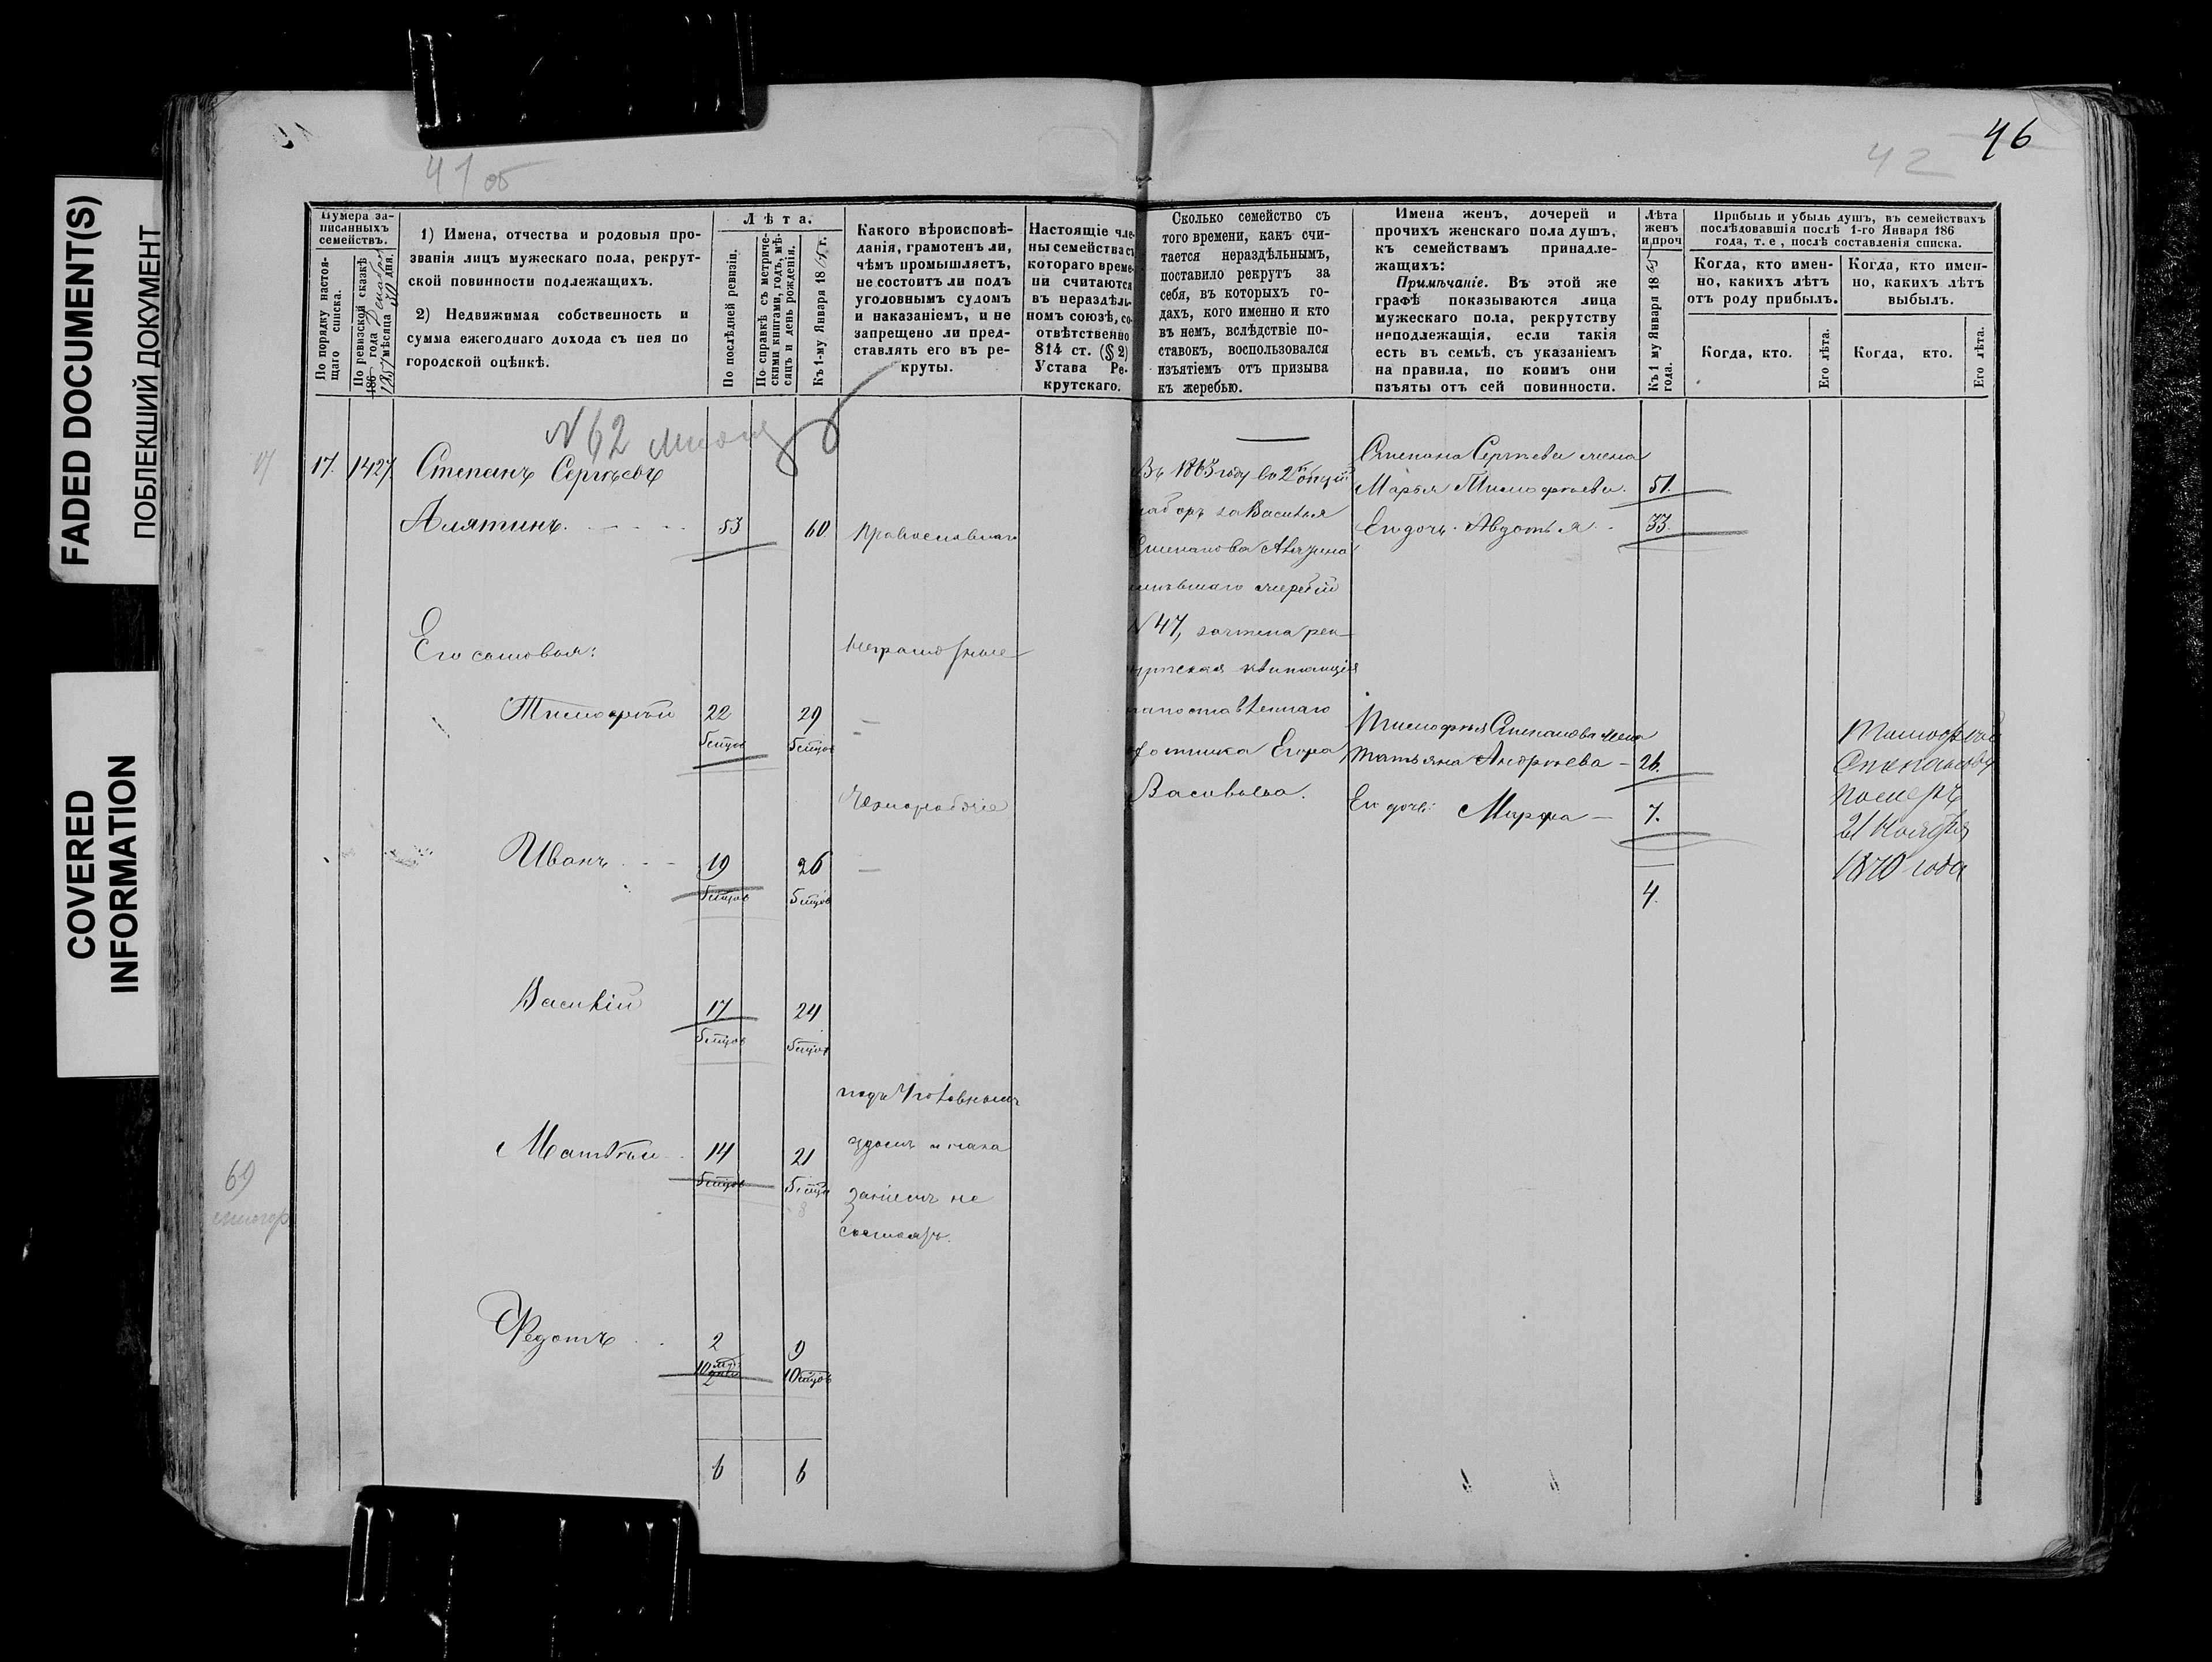 FADED DOCUMENT(S)
ПОБЛЕКШИЙ ДОКУМЕНТ
COVERED
INFORMATION
41 об
42
46
Нумера за-
писанныхъ
семействъ.
По порядку настоя-
щаго списка.
По ревизской сказкѣ
186 года
1857 мѣсяца дня.
1) Имена, отчества и родовыя про-
званія лицъ мужескаго пола, рекрут-
ской повинности подлежащихъ.
2) Недвижимая собственность и
сумма ежегоднаго дохода съ нея по
городской оцѣнкѣ.
Лѣта.
По послѣдней ревизіи.
По справкѣ съ метриче-
скими книгами, годъ, мѣ-
сяцъ и день рожденія.
Къ 1-му Января 1865 г.
Какого вѣроисповѣ-
данія, грамотенъ ли,
чѣмъ промышляетъ,
не состоитъ ли подъ
уголовнымъ судомъ
и наказаніемъ, и не
запрещено ли пред-
ставлять его въ ре-
круты.
Настоящіе чле-
ны семейства съ
котораго време-
ни считаются
въ нераздѣль-
номъ союзѣ, со-
отвѣтственно
814 ст. (§ 2)
Устава Ре-
крутскаго.
Сколько семейство съ
того времени, какъ счи-
тается нераздѣльнымъ,
поставило рекрутъ за
себя, въ которыхъ го-
дахъ, кого именно и кто
въ немъ, вслѣдствіе по-
ставокъ, воспользовался
изъятіемъ отъ призыва
къ жеребью.
Имена женъ, дочерей и
прочихъ женскаго пола душъ,
къ семействамъ принадле-
жащихъ:
Примѣчаніе. Въ этой же
графѣ показываются лица
мужескаго пола, рекрутству
неподлежащія, если такія
есть въ семьѣ, съ указаніемъ
на правила, по коимъ они
изъяты отъ сей повинности.
Лѣта
женъ
и проч
Къ 1 му Января 1865
года.
Прибыль и убыль душъ, въ семействахъ
послѣдовавшія послѣ 1-го Января 186
года, т. е , послѣ составленія списка.
Когда, кто имен-
но, какихъ лѣтъ
отъ роду прибылъ.
Когда, кто имен-
но, какихъ лѣтъ
выбылъ.
Когда, кто.
Его лѣта.
Когда, кто.
Его лѣта.
N 62
17
17. 1427. Степанъ Сергѣевъ
Алятинъ. 53 60 Православнаго
Его сыновья: неграмотные
Тимофѣй 22 29
Чернорабочіе
Иванъ 19 26
Василій 17 24
подъ Уголовнымъ
Матвѣй 14 21 судомъ и нака
заніемъ не
состоятъ.
69
Федотъ 2 9
6 6
Въ 1863 году во 2й общій
наборъ за Василья
Степанова Алятина
имѣвшаго жеребій
N 47, зачтена рек-
рутская квитанція
Егора
Васильева.
Степана Сергѣева жена
Марья Тимофѣева. 51.
Его дочь Авдотья 33.
Тимофѣя Степанова жена
Татьяна Андрѣева - 26.
Его дочь Марфа - 7.
4.
Тимофѣй
Степановъ
померъ
21 Ноября
1870 года